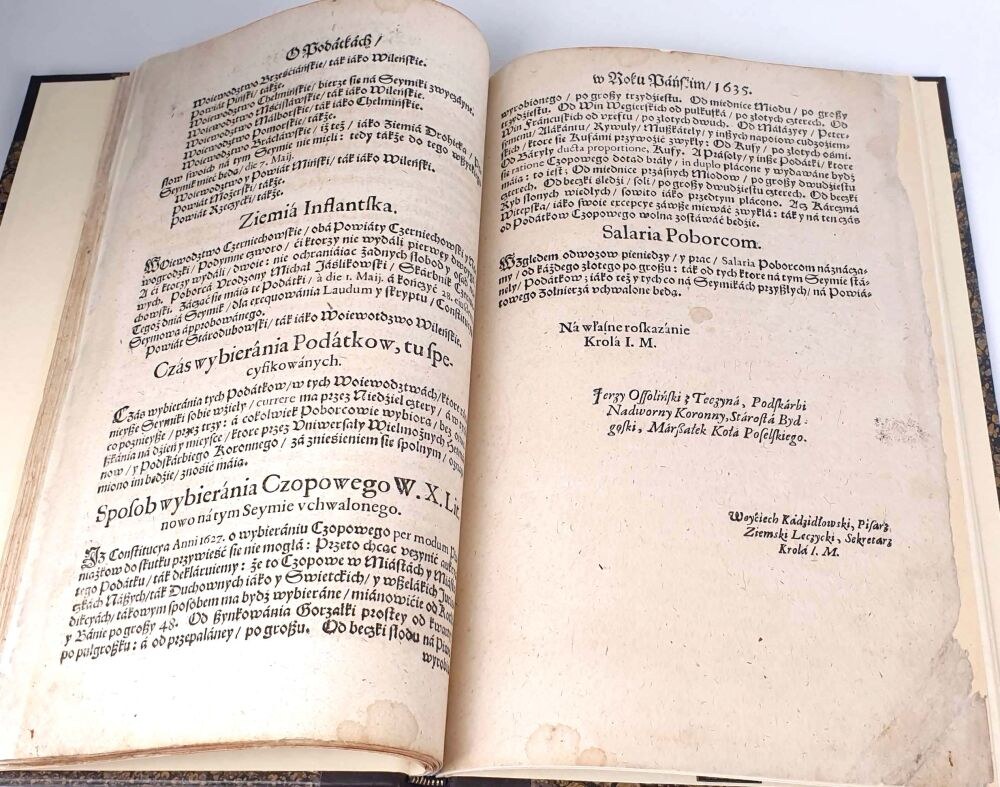 O Podátkách/
Woiewodztwo Brześćiáńskie/ ták iáko Wileńskie.
Powiát Piński/ tákże.
Woiewodztwo Chelmińskie/ bierze się ná Seymiki zwyczáyne.
Woiewodztwo Mśćisláwskie/ ták iáko Wileńskie.
Woiewodztwo Málborskie/ ták iáko Chelmińskie.
Woiewodztwo Pomorskie/ tákże.
Woiewodztwo Brácláwskie/ iż też/ iáko Ziemiá Drohicka/
slow swoich ná tym Seymie nie mieli: tedy tákże do tego wszystkiego
Seymik mieć będą/ die 7. Maij.
Woiewodztwo y Powiát Miński/ ták iáko Wileński.
Powiát Mozerski/ tákże.
Powiát Rzeczycki/ tákże.
Ziemiá Inflantska.
WOiewodztwo Czerniechowskie/ obá Powiáty Czerniechowski y Nowo-
wogrodzki/ Podymne czworo/ ći ktorzy nie wydáli pierwey dwoygá
A ći ktorzy wydáli/ dwoie: nie ochrániáiąc żadnych slobod y oso-
wych. Poborcá Vrodzony Michał Jáślikowski/ Skárbnik Czernie-
chowski. Zácząć się máią te Podatki/ á die 1. Maij. á kończyć 28.
Tegoż dniá Seymik/ dla exequowánia Laudum y skryptu/ Constitucyą
Seymową ápprobowánego.
Powiát Stárodubowski/ ták iáko Woiewotdzwo Wileńskie.
Czás wybieránia Podátkow, tu spe-
cyfikowánych.
Czás wybierániá tych Podátkow/ w tych Woiewodztwách/ ktore
nieysze Seymiki sobie wzięły/ currere ma przez Niedziel cztery/ á w
co poznieysze/ przez trzy: á cokolwiek Poborcowie wybiorą/ bez
szkániá ná dzień y mieysce/ ktore przez Vniwersały Wielmożnych Hetma-
now/ y Podskárbiego Koronnego/ zá znieśieniem się spolnym/ oznay-
miono im będzie/ znośić máią.
Sposob wybieránia Czopowego W. X. Lit.
nowo ná tym Seymie vchwalonego.
IZ Constitucya Anni 1627. o wybieraniu Czopowego per modum
niażkow do skutku przywieść się nie moglá: Przeto chcąc vczynić
tego Podatku/ ták deklárniemy: że to Czopowe w Miástách y Miá-
czkách Nászych/ ták Duchownych iáko y Swietckich/ y wszelákich Juriz-
dikcyách/ tákowym sposobem ma bydź wybieráne/ miánowićie od
y Bánie po groszy 48. Od szynkowánia Gorzałki prostey od kwar-
po pulgroszku: á od przepaláney/ po groszu. Od beczki slodu ná Piwo
wyrobio-
w Roku Páńskim/ 1635.
wyrobionego/ po groszy trzydzieśtu. Od miednice Miodu/ po groszy
trzydzieśtu. Od Win Węgierskich od pulkuska/ po złotych czterech. Od
Win Fráncuskich od vrestu/ po złotych dwuch. Od Málázycy/ Peter-
sementu/ Alákántu/ Rywuly/ Muszkátely/ y inszych napoiow cudzoziem-
skich/ ktore się Kufámi przywozić zwykły: Od Kufy/ po złotych osmi.
Od Báryly ducta proportione, Kufy. A Prásoły/ y insze Podatki/ ktore
się ratione Czopowego dotąd bráły/ in duplo płácone y wydáwáne bydź
máią: to iest: Od miednice przásnych Miodow/ po groszy dwudziestu
czterech. Od beczki śledzi/ soli/ po groszy dwudziestu czterech. Od beczki
Ryb słonych wiedłych/ sowito iáko przedtym płácono. A z Kárczmá
Witepska/ iáko swoie excepcye záwsze miewáć zwykłá: ták y ná ten czás
od Podatkow Czopowego wolna zostáwáć będzie.
Salaria Poborcom.
WZględem odwozow pieniędzy/ y prac/ Salaria Poborcom náznácza-
my/ od káżdego złotego po groszu: ták od tych ktore ná tym Seymie stá-
nely/ Podatkow: iáko też y tych co ná Seymikách przyszłych/ ná Powiá-
towego Żołnierzá vchwalone będą.
Ná własne roskazánie
Krolá I. M.
Jerzy Ossoliński z Teczyná, Podskárbi
Nadworny Koronny, Stárostá Byd-
goski, Márszałek Kołá Poselskiego.
Woyćiech Kádzidłowski, Pisarz
Ziemski Łęczycki, Sekretarz
Krolá I. M.